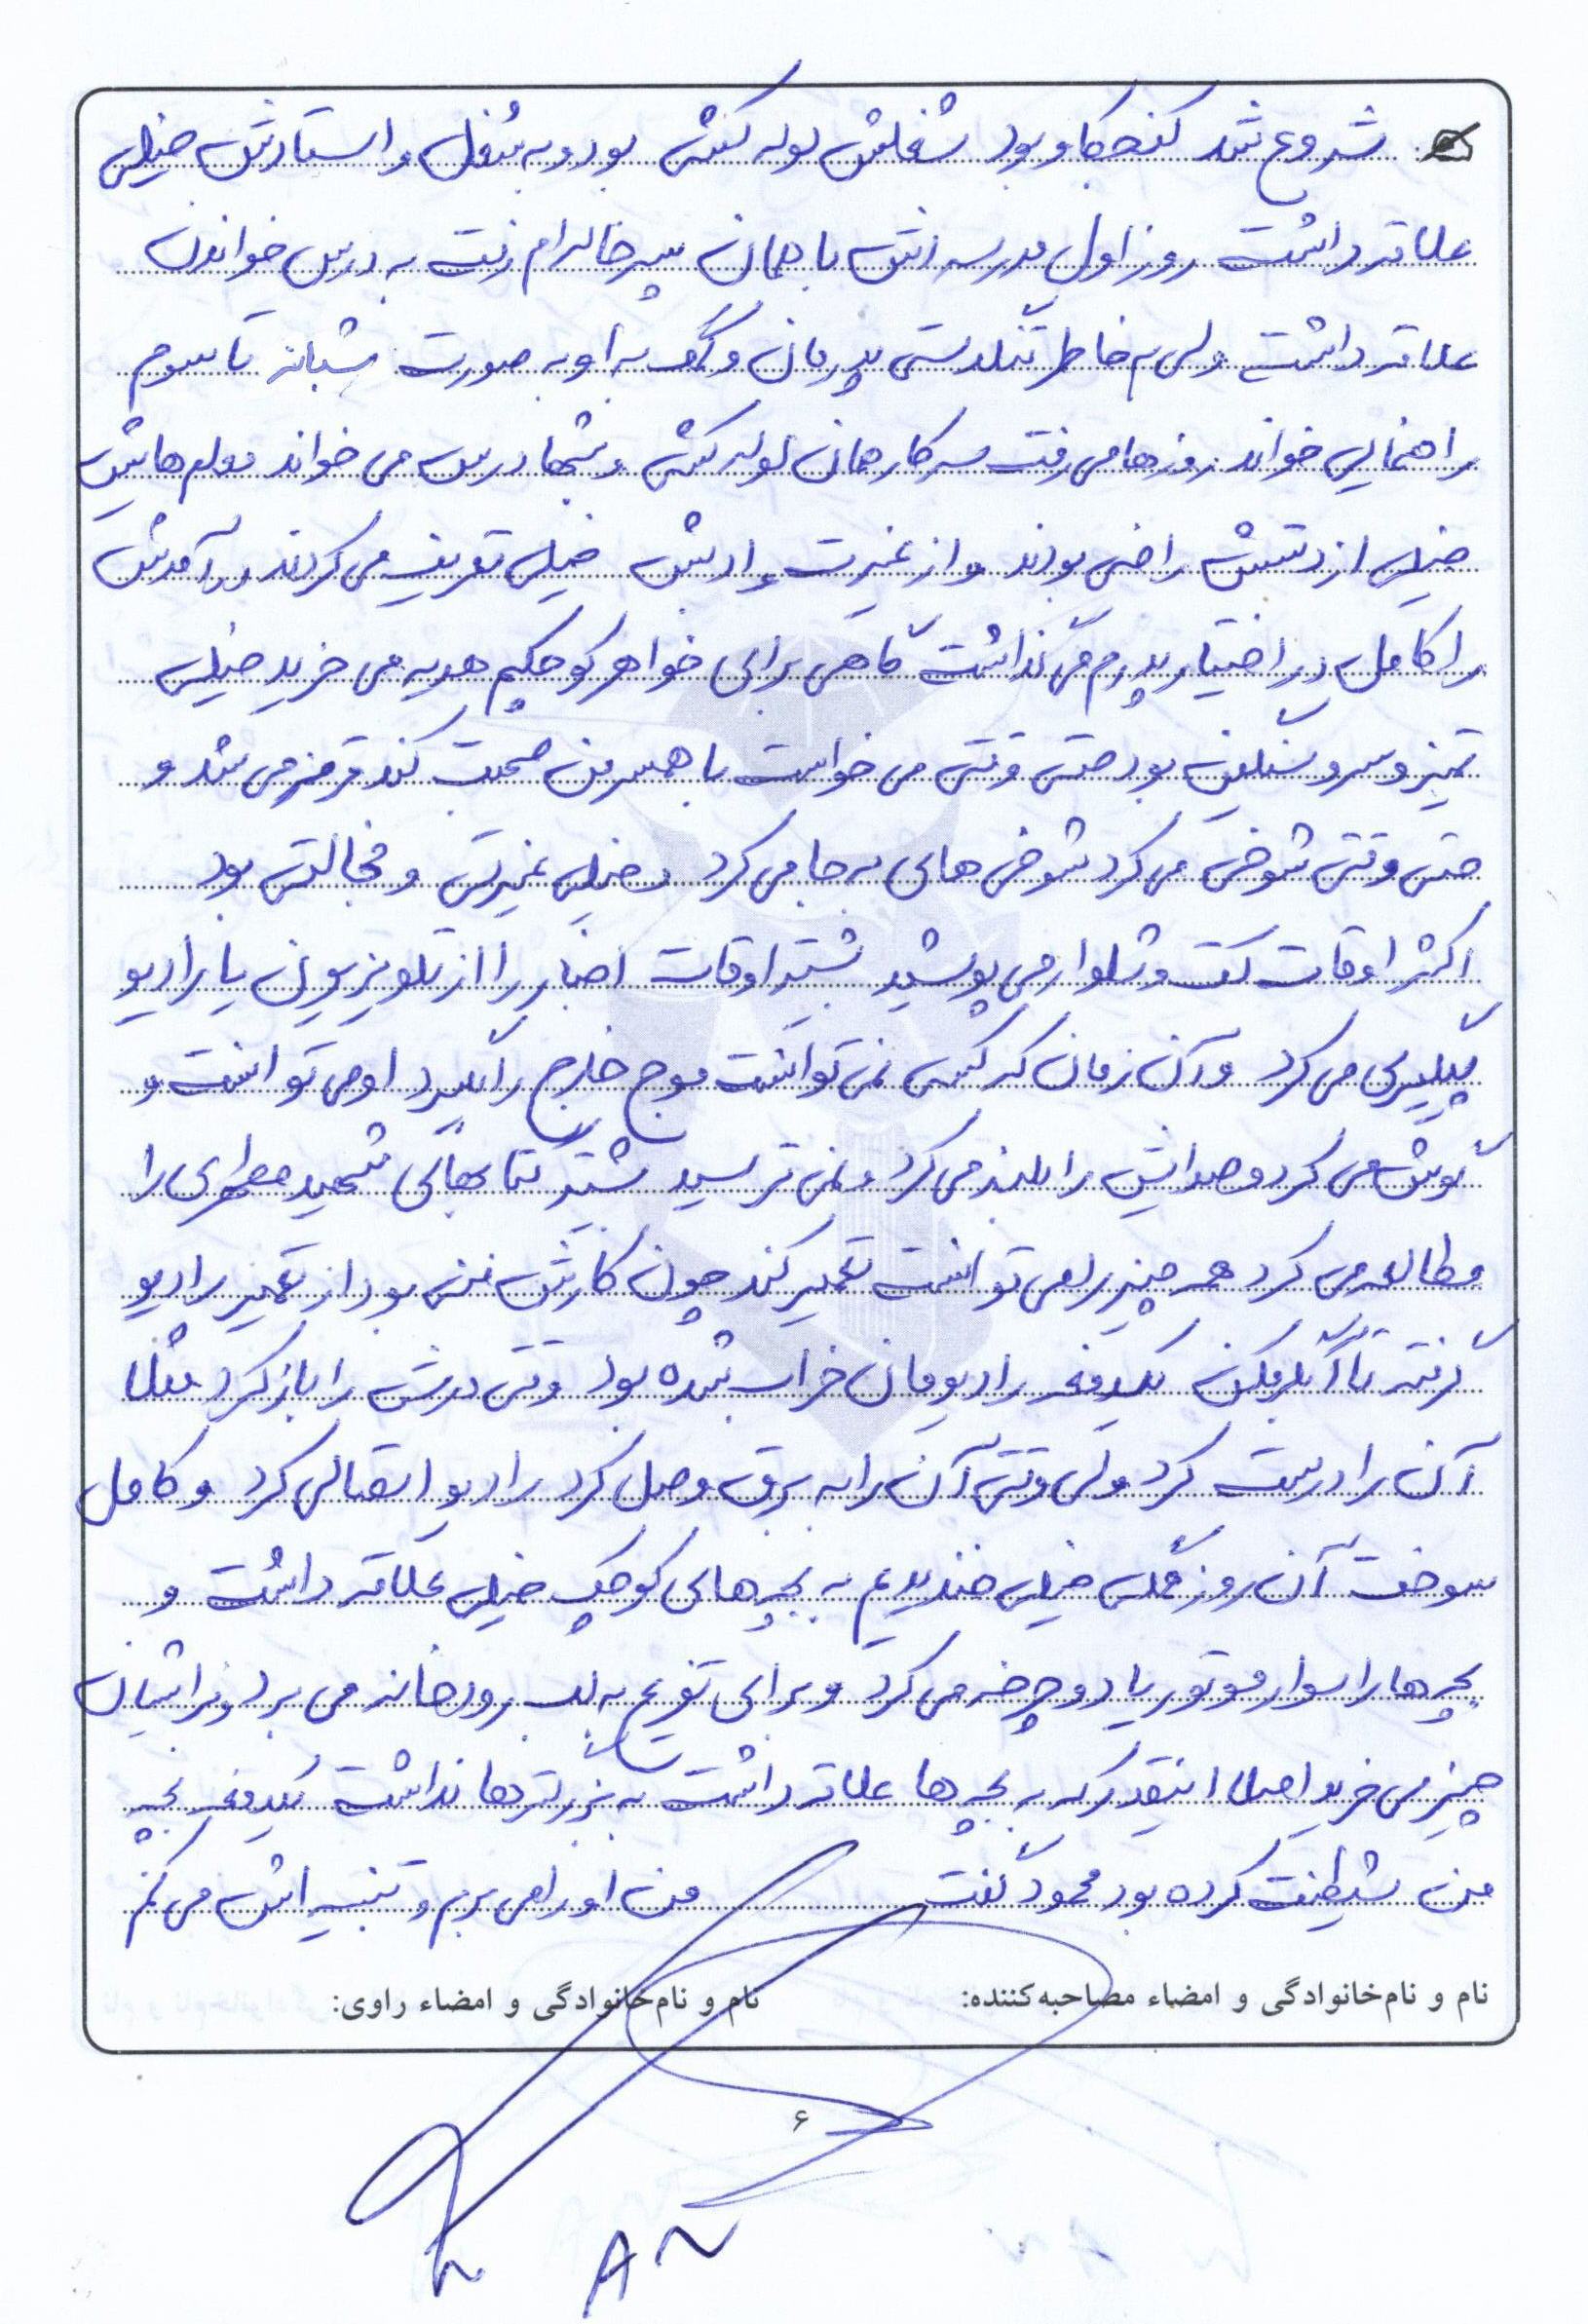 شروع شد کنجکاو بود شغلش لوله کشی بود و به شغل و استادش خیلی
علاقه داشت روز اول مدرسه اش با همان پسر خاله ام رفت به درس خواندن
علاقه داشت ولی به خاطر تنگدستی پدرمان و کمک به او به صورت شبانه تا سوم
راهنمایی خواند روزها می رفت سر کار همان لوله کشی و شبها درس می خواند معلم هایش
خیلی از دستش راضی بودند و از غیرت و ادبش خیلی تعریف می کردند درآمدش
را کامل در اختیار پدرم می گذاشت گاهی برای خواهر کوچکم هدیه می خرید خیلی
تمیز و سر و سنگین بود حتی وقتی می خواست با همسر من صحبت کند قرمز می شد و
حتی وقتی شوخی می کرد شوخی های به جا می کرد خیلی غیرتی و خجالتی بود
اکثر اوقات کت و شلوار می پوشید بیشتر اوقات اخبار را از تلویزیون یا رادیو
پیگیری می کرد و آن زمان که کسی نمی توانست موج خارج را بگیرد او می توانست و
گوش می کرد و صدایش را بلند می کرد و نمی ترسید بیشتر کتابهای شهید مطهری را
مطالعه می کرد همه چیز را می توانست تعمیر کند چون کارش فنی بود از تعمیر رادیو
گرفته تا آبگرمکن یکدفعه رادیومان خراب شده بود وقتی درش را باز کرد مثلا
آن را درست کرد ولی وقتی آن را به برق وصل کرد رادیو اتصالی کرد و کامل
سوخت آن روز همگی خیلی خندیدیم به بچه های کوچک خیلی علاقه داشت و
بچه ها را سوار موتور یا دوچرخه می کرد و برای تفریح به لب رودخانه می برد و برایشان
چیز می خرید اصلا اینقدر که به بچه ها علاقه داشت به بزرگترها نداشت یکدفعه بچه
من شیطنت کرده بود محمود گفت من او را می برم و تنبیه اش می کنم
نام و نام‌خانوادگی و امضاء مصاحبه‌کننده: نام و نام‌خانوادگی و امضاء راوی:
۶